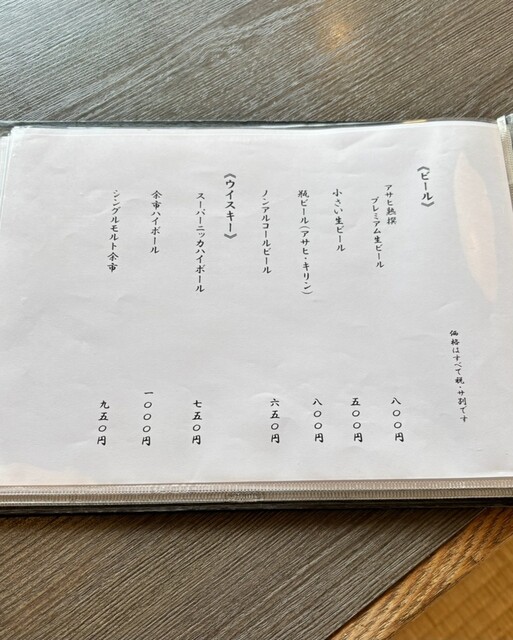 《ビール》
価格はすべて税・サ別です
アサヒ熟撰
プレミアム生ビール 八〇〇円
小さい生ビール 五〇〇円
瓶ビール(アサヒ・キリン) 八〇〇円
ノンアルコールビール 六五〇円
《ウイスキー》
スーパーニッカハイボール 七五〇円
余市ハイボール 一〇〇〇円
シングルモルト余市 九五〇円